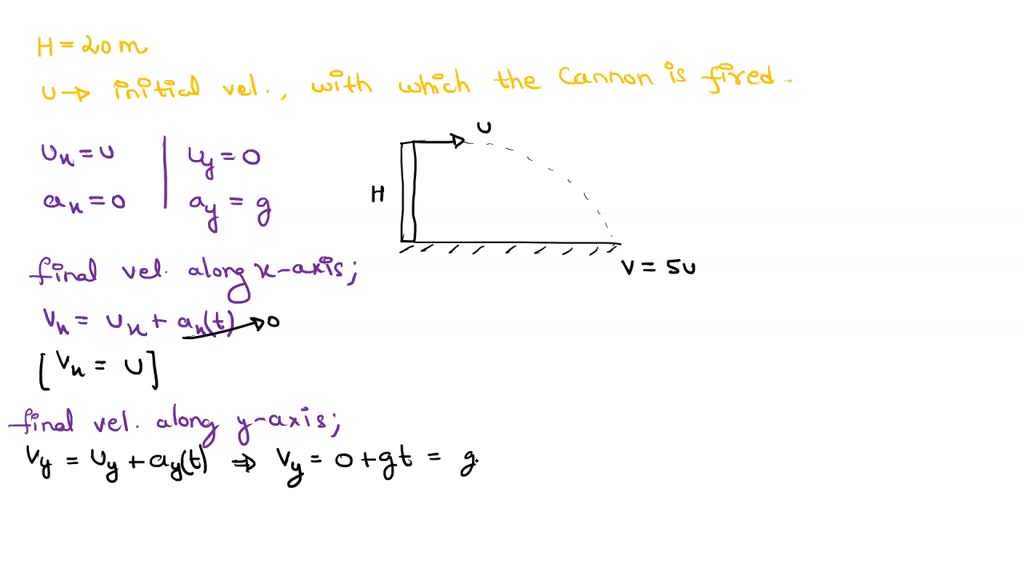 H = 20 m
U → initial vel., with which the Cannon is fired.
Ux = U | Uy = 0
ax = 0 | ay = g
U
H
V = 5U
final vel. along x-axis;
Vx = Ux + ax(t) → 0
[Vx = U]
final vel. along y-axis;
Vy = Uy + ay(t) ⇒ Vy = 0 + gt = g